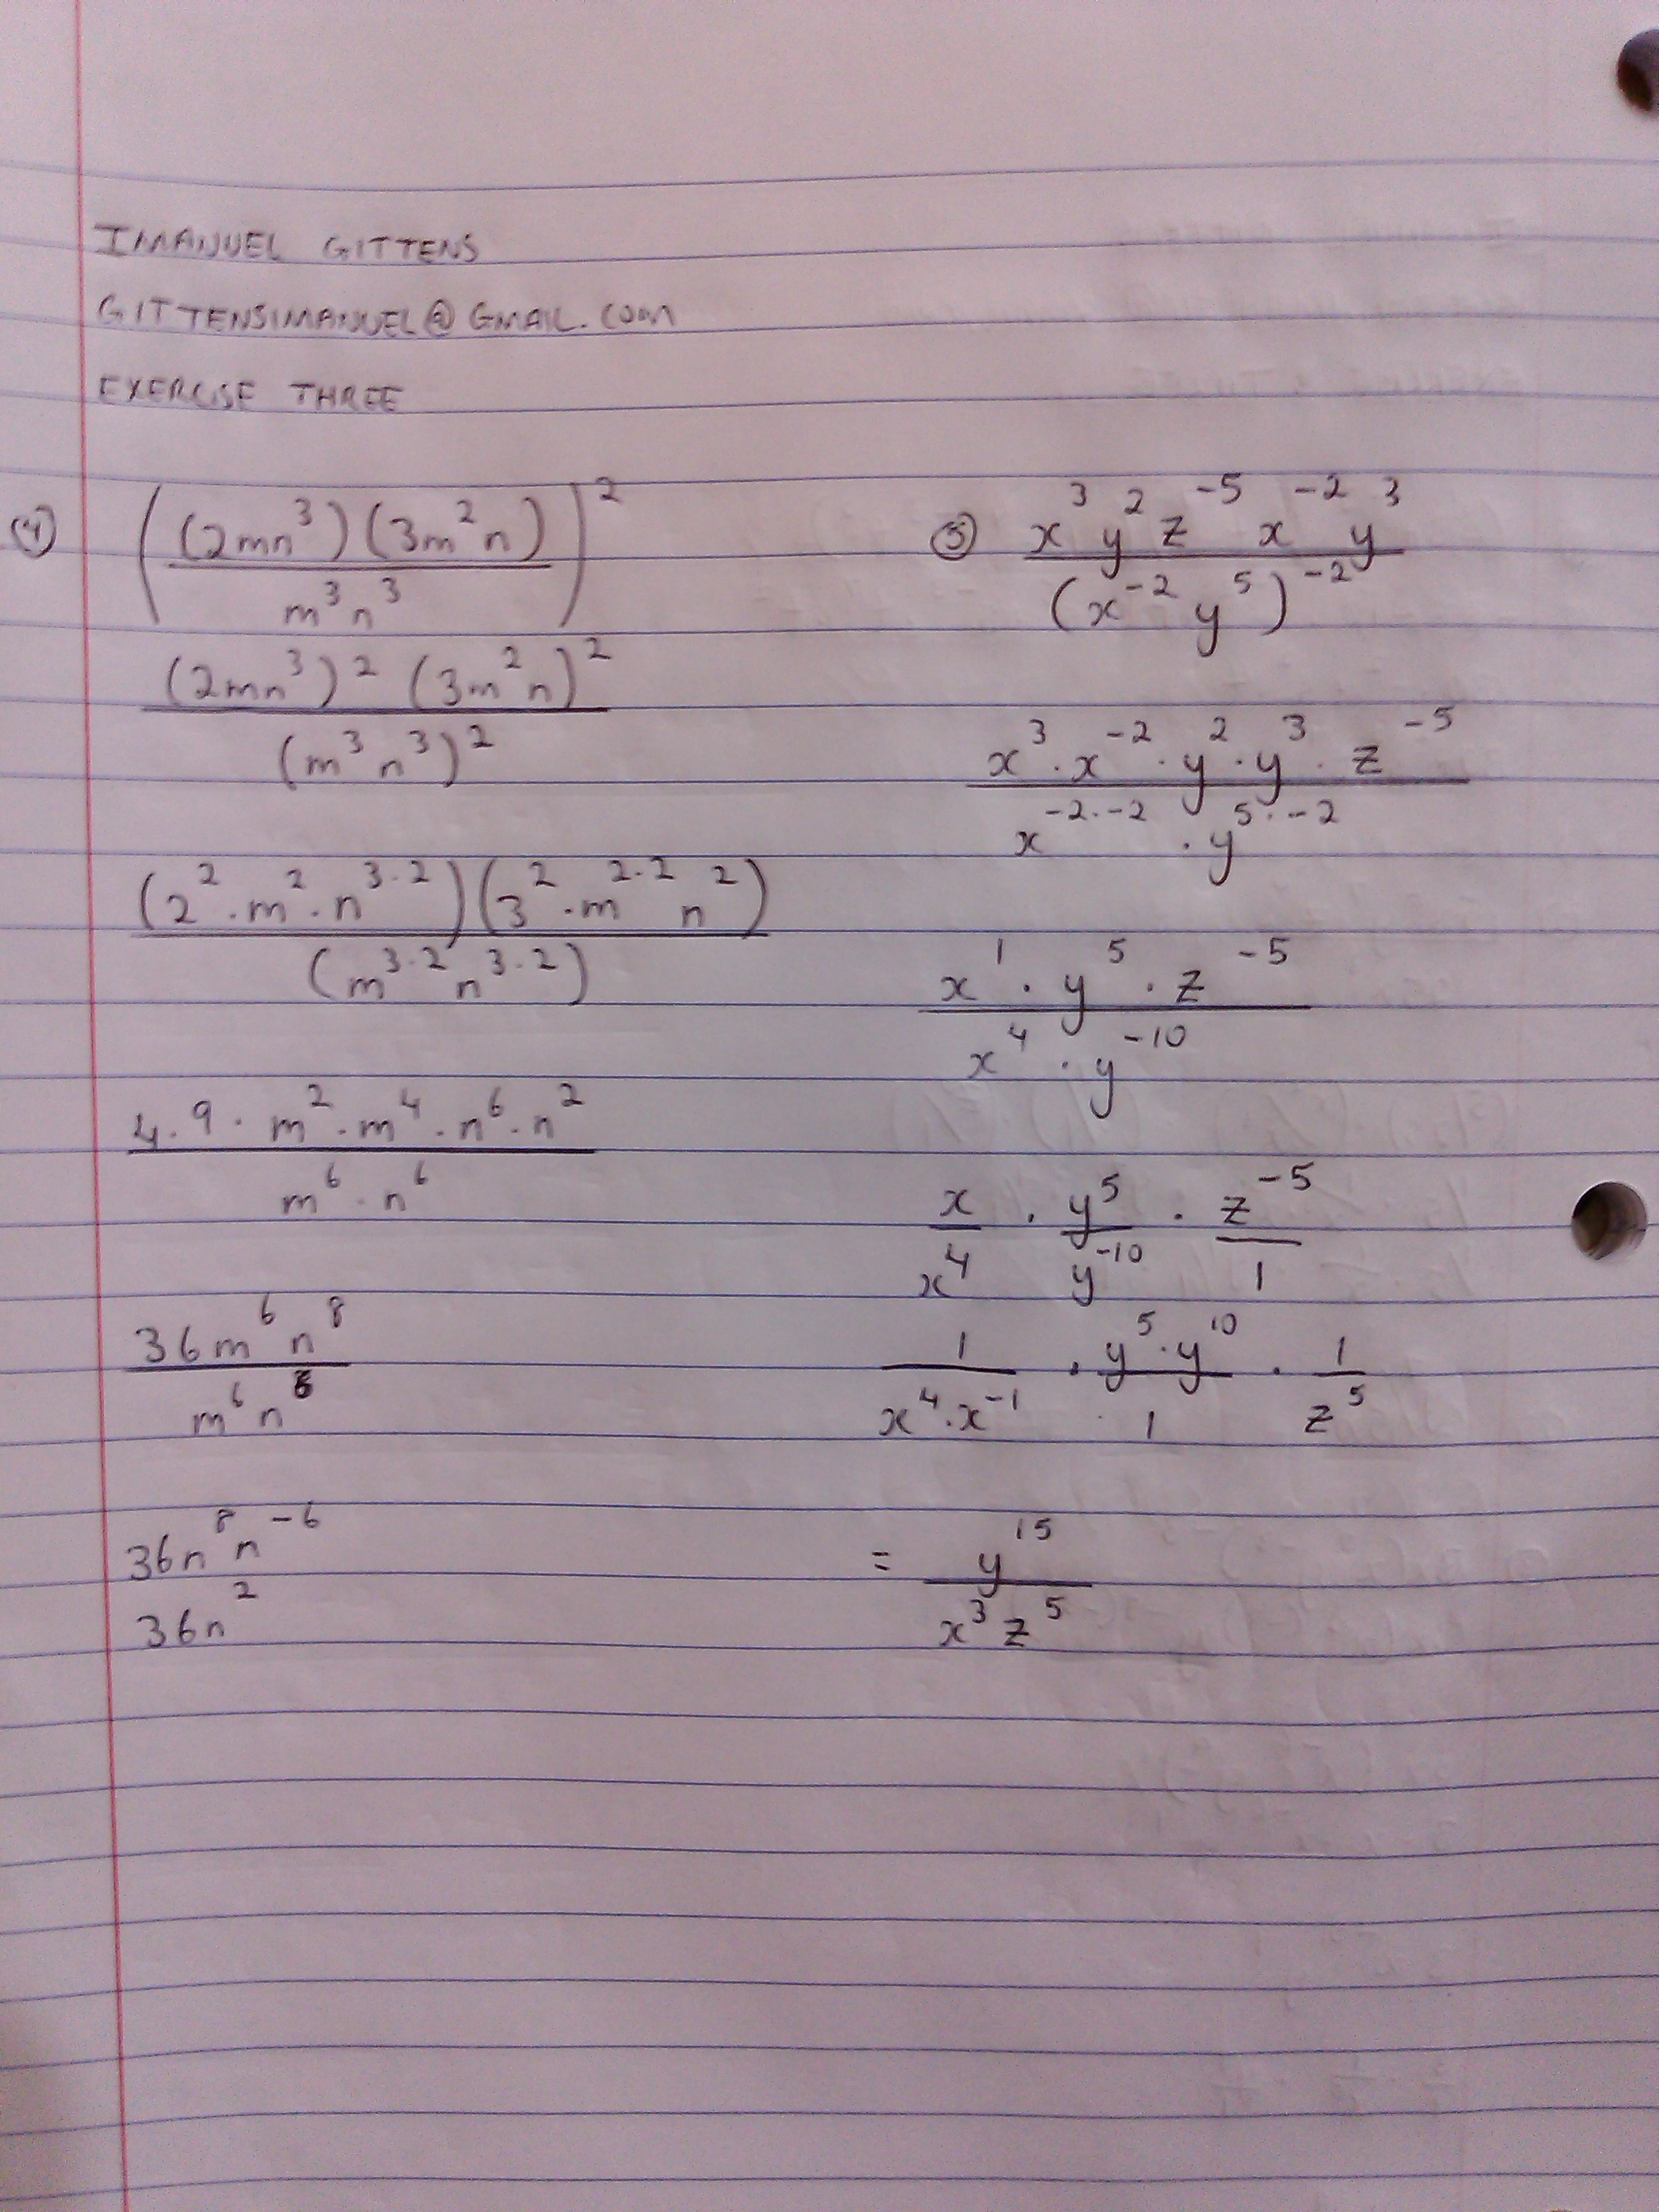 IMANUEL GITTENS
GITTENSIMANUEL@GMAIL.COM
EXERCISE THREE
④ ((2mn³)(3m²n) / m³n³)²
(2mn³)² (3m²n)² / (m³n³)²
(2² · m² · n³·²)(3² · m²·² n²) / (m³·² n³·²)
4 · 9 · m² · m⁴ · n⁶ · n² / m⁶ · n⁶
36m⁶n⁸ / m⁶n⁶
36n⁸n⁻⁶
36n²
⑤ x³y²z⁻⁵x⁻²y³ / (x⁻²y⁵)⁻²
x³ · x⁻² · y² · y³ · z⁻⁵ / x⁻²·⁻² · y⁵·⁻²
x¹ · y⁵ · z⁻⁵ / x⁴ · y⁻¹⁰
x / x⁴ · y⁵ / y⁻¹⁰ · z⁻⁵ / 1
1 / x⁴·x⁻¹ · y⁵·y¹⁰ / 1 · 1 / z⁵
= y¹⁵ / x³z⁵